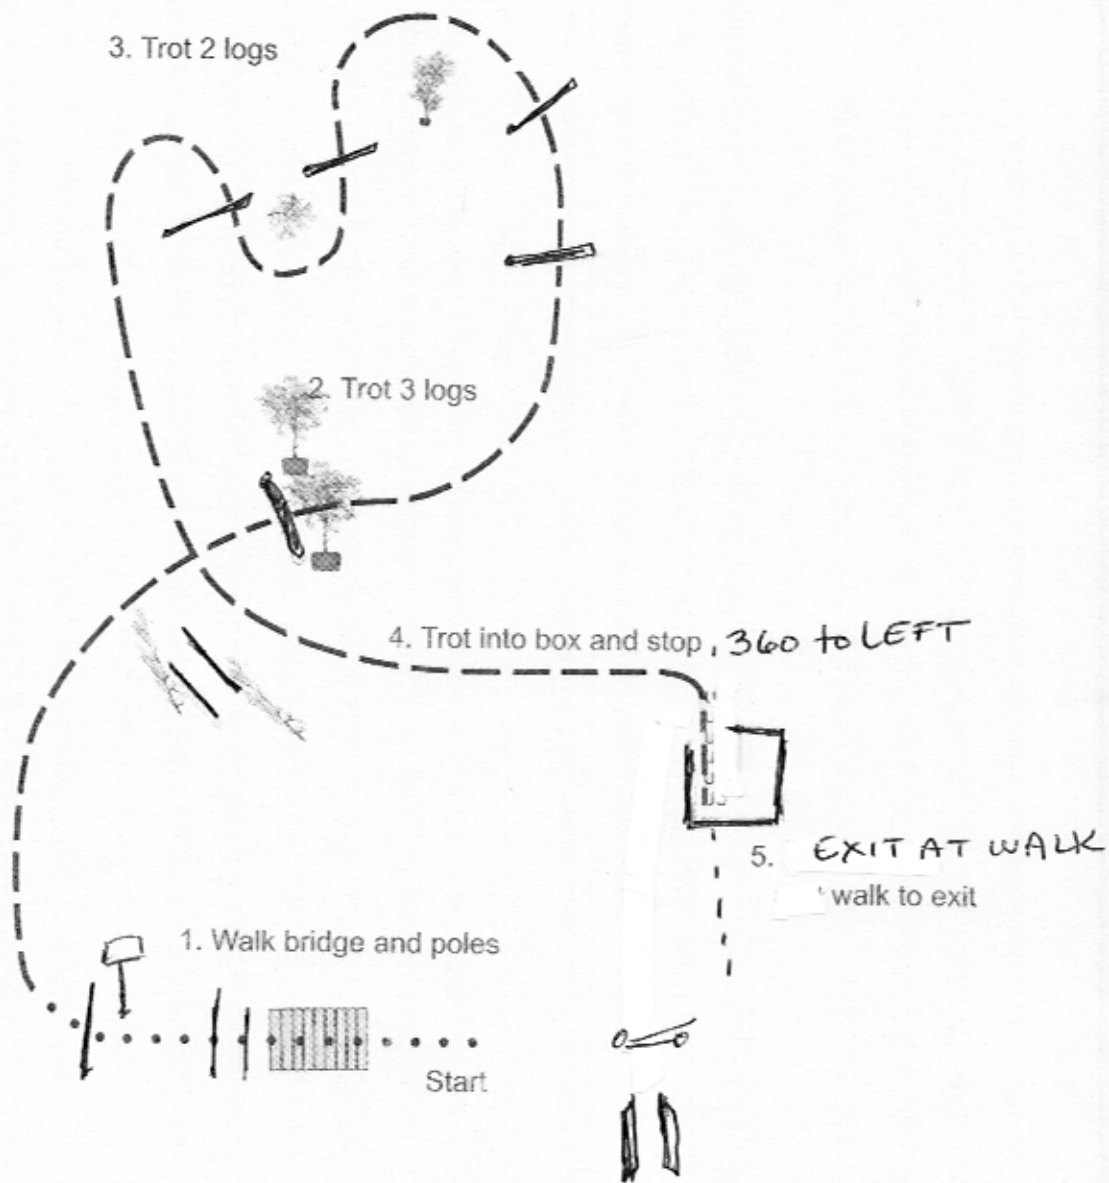 3. Trot 2 logs
2. Trot 3 logs
4. Trot into box and stop, 360 to LEFT
5. EXIT AT WALK
walk to exit
1. Walk bridge and poles
Start